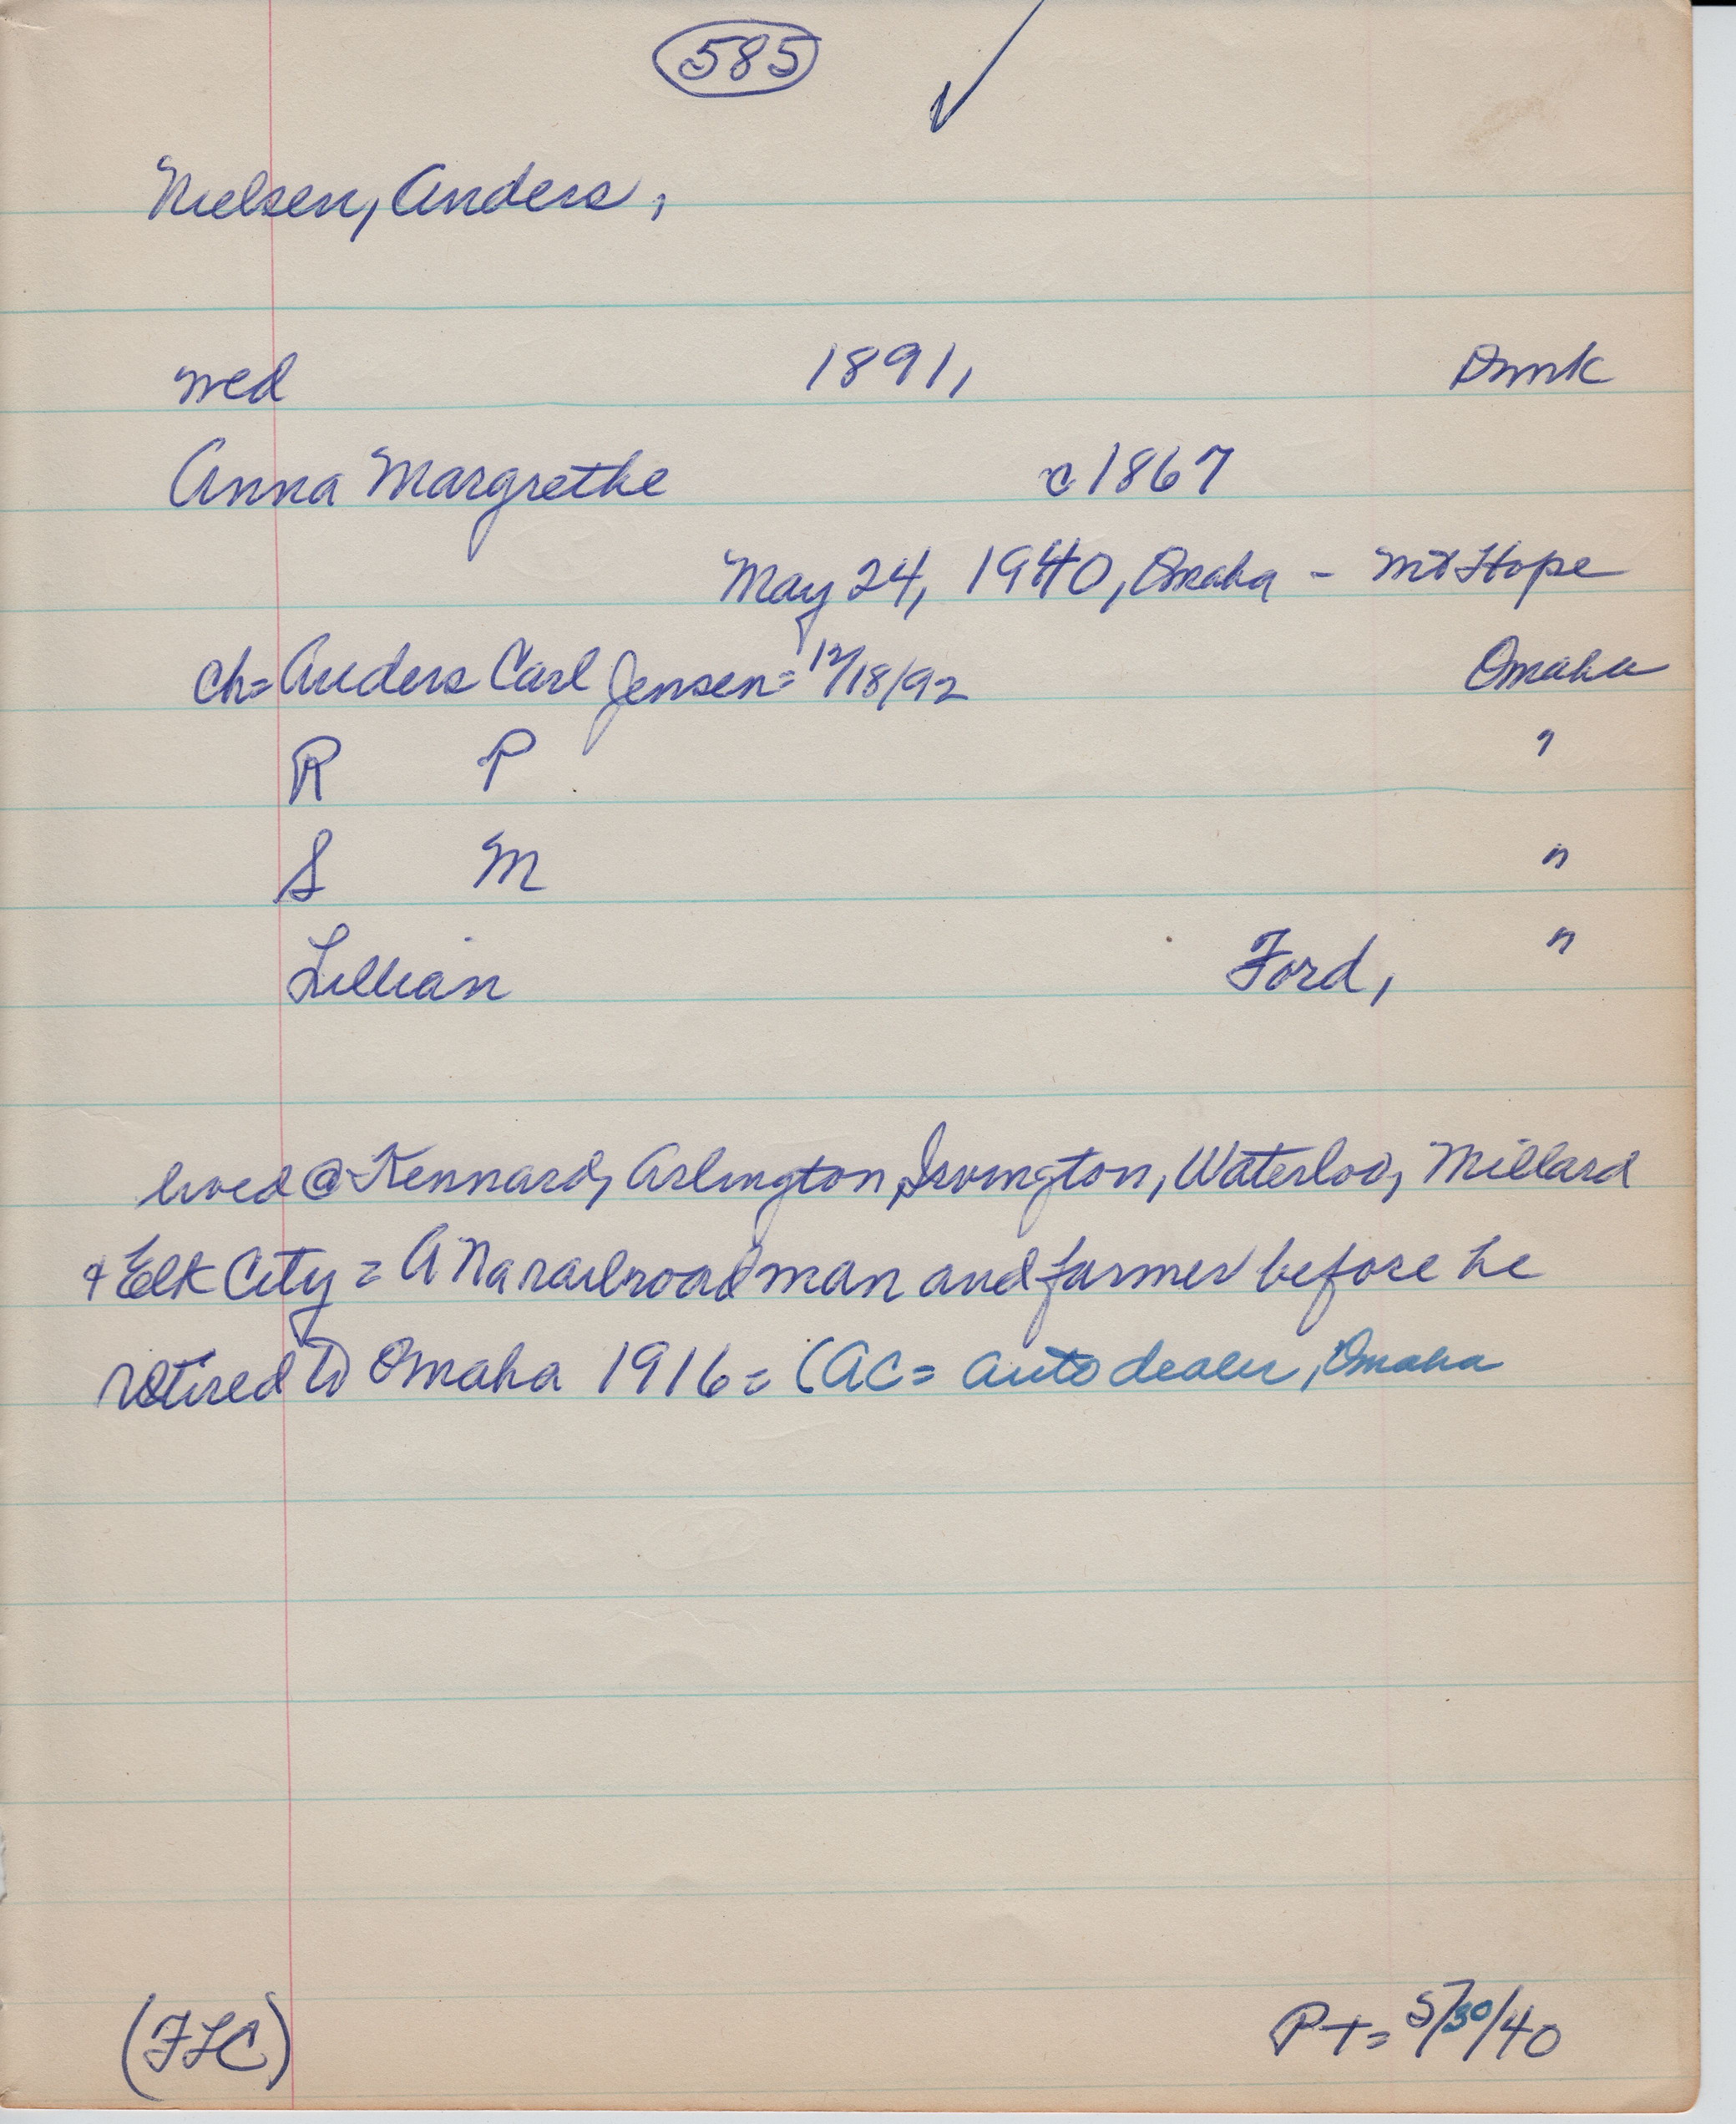 585 ✓
Nielsen, Anders,
wed 1891, Dnmk
Anna Margrethe c1867
May 24, 1940, Omaha - Mt Hope
ch= Anders Carl Jensen= 12/18/92 Omaha
R P "
S M "
Lillian Ford, "
lived @ Kennard, Arlington, Irvington, Waterloo, Millard
& Elk City = A N a railroad man and farmer before he
retired to Omaha 1916 = (AC = auto dealer, Omaha
(FLC) PT= 5/30/40